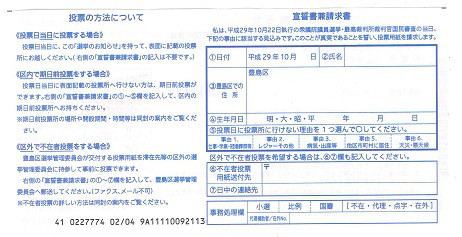 投票の方法について
≪投票日当日に投票する場合≫
投票日当日に、この「選挙のお知らせ」を持って、表面に記載の投票
所にお越しください。(右側の「宣誓書兼請求書」の記入は不要です。)
≪区内で期日前投票をする場合≫
投票日当日に表面に記載の投票所へ行けない方は、期日前投票が
できます。右側の「宣誓書兼請求書」の①~⑤欄を記入して、区内の期
日前投票所へお持ちください。
※期日前投票所の場所や開設期間・時間等は同封の案内をご覧ください。
≪区外で不在者投票をする場合≫
豊島区選挙管理委員会が交付する投票用紙を滞在先等の区外の選
挙管理委員会に持参して事前に投票できます。
右側の「宣誓書兼請求書」の①~⑦欄を記入して、豊島区選挙管理
委員会へ郵送してください。(ファクス、メール不可)
※不在者投票の詳しい方法は同封の案内をご覧ください。
41 0227774 02/04 9A11110092113
宣誓書兼請求書
私は、平成29年10月22日執行の衆議院議員選挙・最高裁判所裁判官国民審査の当日、
下記の事由に該当する見込みです。このことが真実であることを誓い、投票用紙を請求します。
①日付 平成 29 年 10 月 日 ②氏名
③豊島区での住所 豊島区
④生年月日 明・大・昭・平 年 月 日
⑤投票日に投票所に行けない理由を1つ選んで○してください。
事由1. 仕事・学業・冠婚葬祭 事由2. レジャーその他 事由3. 病気・出産等 事由5. 他区市町村に居住 事由6. 天災・悪天候
区外で不在者投票を希望する場合は、⑥⑦欄も記入してください。
⑥不在者投票用紙送付先 〒
⑦日中の連絡先
事務処理欄 小選 比例 国審 [不在・代理・点字・在外]